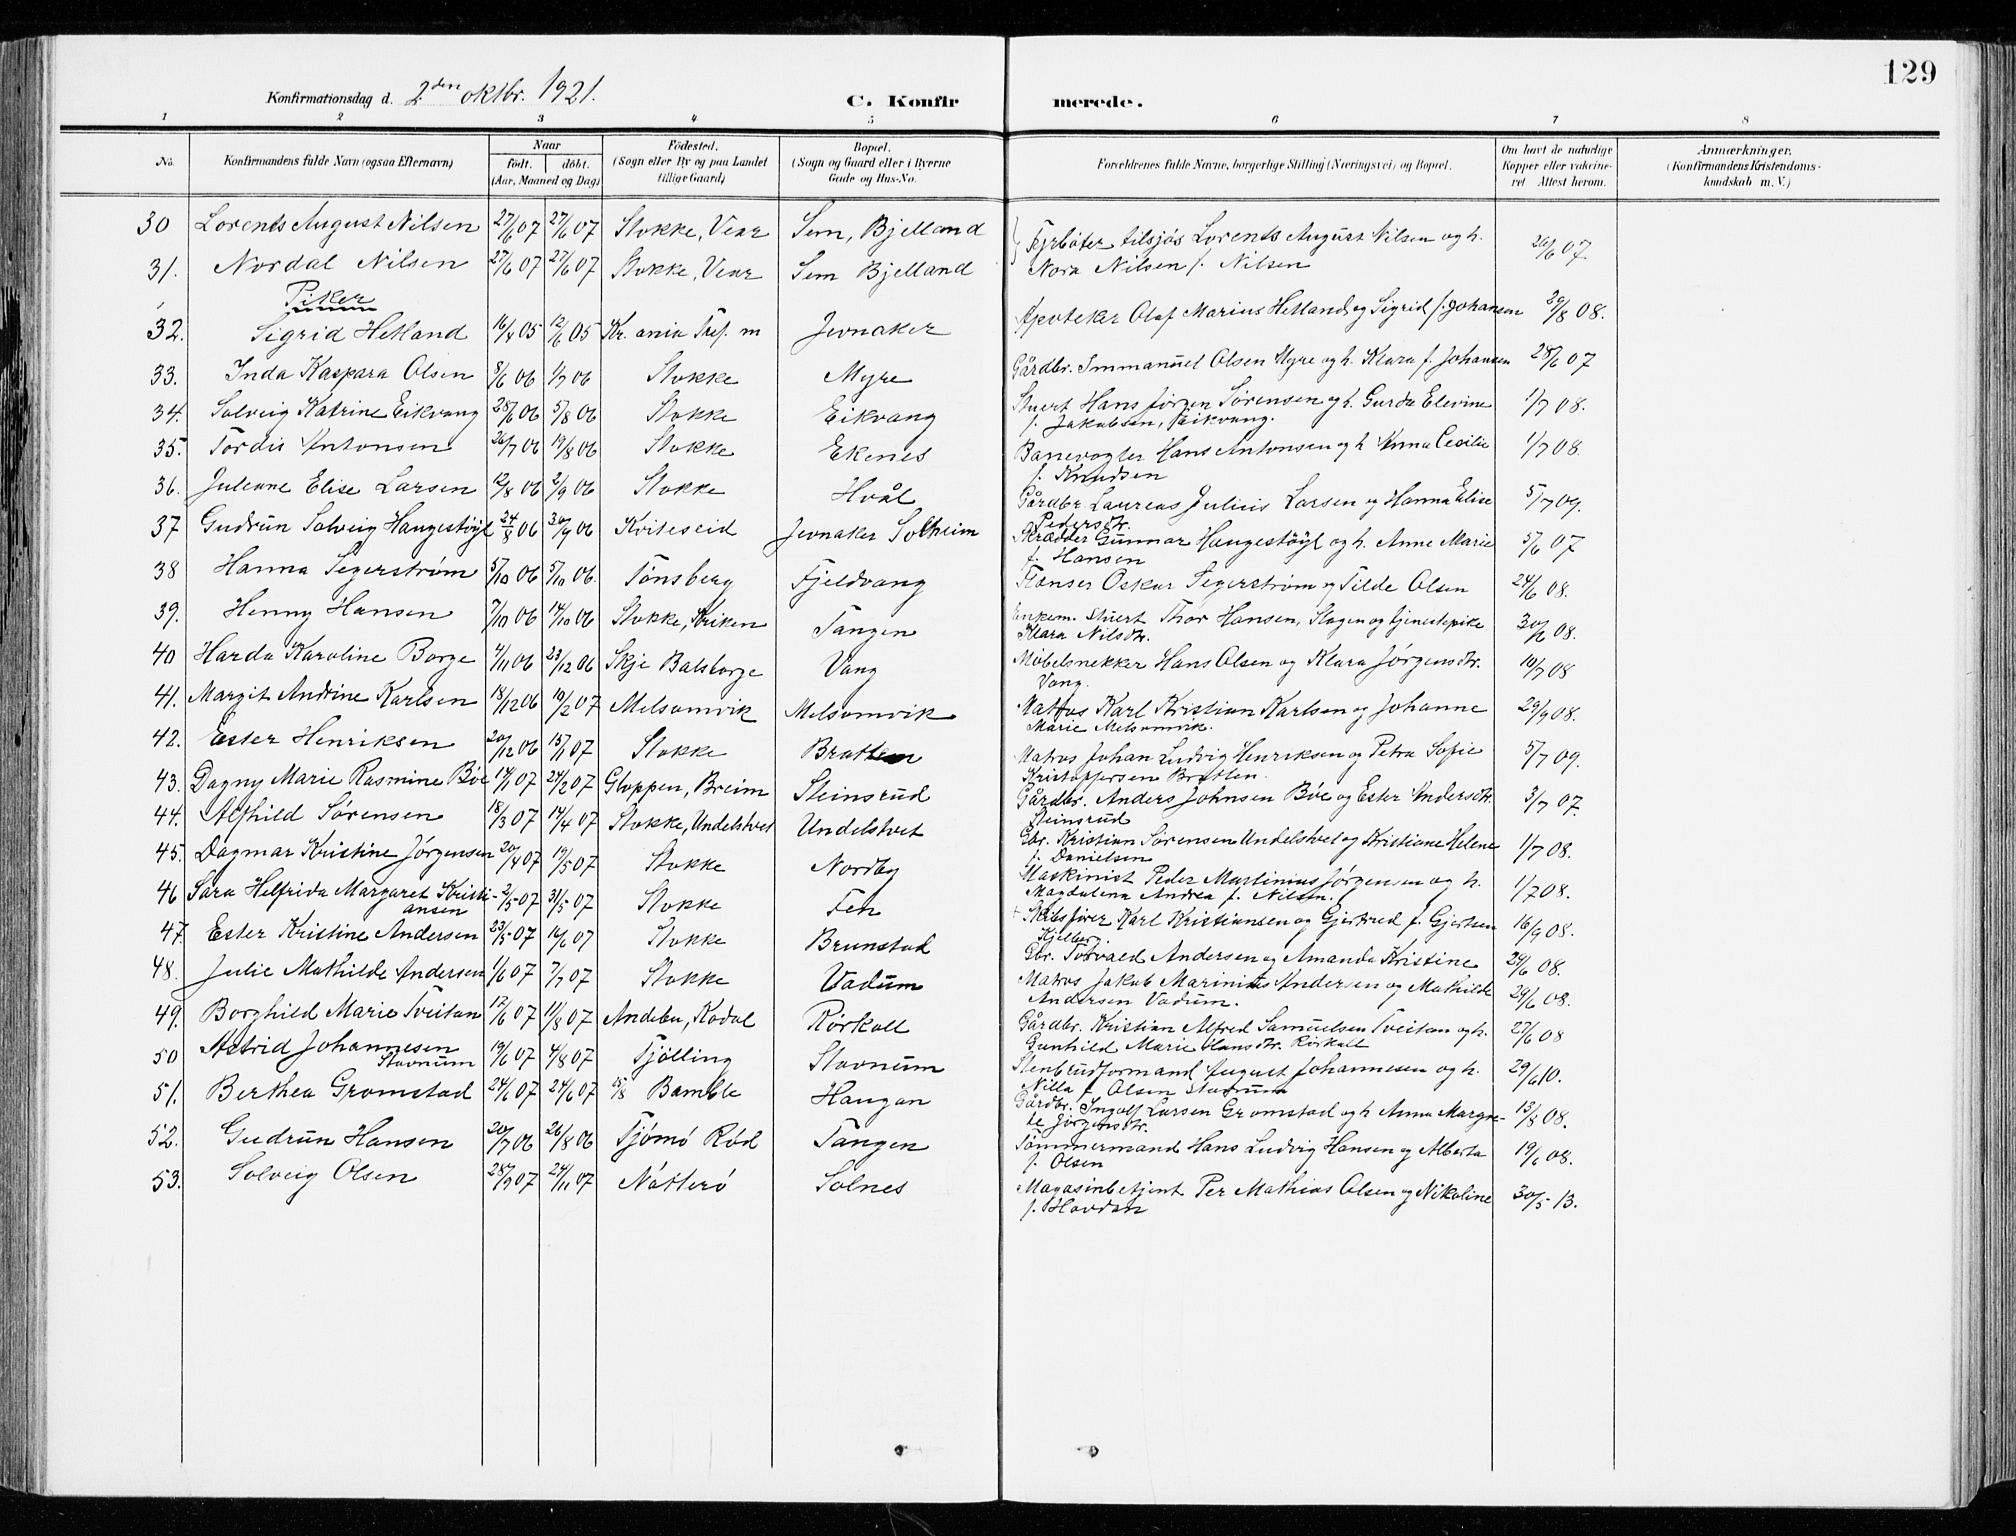 129
Konfirmationsdag d. 2den oktbr. 1921.
C. Konfirmerede.
1 2 3 4 5 6 7 8
No. Konfirmandens fulde Navn (ogsaa Efternavn) Naar født. døbt. (Aar, Maaned og Dag) Fødested. (Sogn eller By og paa Landet tillige Gaard) Bopæl. (Sogn og Gaard eller i Byerne Gade og Hus-No. Forældrenes fulde Navne, borgerlige Stilling (Næringsvei) og Bopæl. Om havt de naturlige Kopper eller vakcineret Attest herom. Anmærkninger. (Konfirmandens Kristendomskundskab m. V.)
30 Lorents August Nilsen 27/6 07 27/6 07 Stokke, Vear Sem, Bjelland Fyrbøter tilsjøs Lorents August Nilsen og h. 26/6 07
31. Nordal Nilsen 27/6 07 27/6 07 Stokke, Vear Sem Bjelland Nora Nilsen f. Nilsen
Piker
32. Sigrid Hetland 16/4 05 12/6 05 Kr.ania Tref. m Jevnaker Apoteker Olaf Marius Hetland og Sigrid f. Johansen 29/8 08.
33. Inda Kaspara Olsen 8/6 06 1/7 06 Stokke Myre Gårdbr. Immanuel Olsen Myre og h. Klara f. Johansen 28/6 07
34. Solveig Katrine Eikvang 28/6 06 5/8 06 Stokke Eikvang Stuert Hans Jørgen Sørensen og h. Gurda Elevine 1/7 08.
f. Jakobsen, Eikvang.
35. Tordis Antonsen 26/7 06 19/8 06 Stokke Ekenes Banevogter Hans Antonsen og h Anna Cecilie 1/7 08.
f. Knudsen
36. Juliane Elise Larsen 12/8 06 2/9 06 Stokke Hvål Gårdbr Laureas Julius Larsen og Hanna Elise 5/7 09.
Pedersdtr.
37 Gudrun Solveig Haugestøyl 24/8 06 30/9 06 Kviteseid Jevnaker Solheim Skrædder Gunnar Haugestøyl og h. Anne Marie 5/6 07
f. Hansen
38 Hanna Segerstrøm 5/10 06 5/10 06. Tønsberg Fjeldvang Flanser Oskar Segerstrøm og Tilde Olsen 24/6 08.
39. Henny Hansen 7/10 06 14/10 06 Stokke, Kriken Tangen Enkem. Stuert Thor Hansen, Slagen og tjenestepike 30/6 08.
Klara Nilsdtr.
40 Harda Karoline Borge 4/11 06 23/12 06 Skje Balsborge Vang Møbelsnekker Hans Olsen og Klara Jørgensdtr. 10/7 08
Vang.
41. Margit Andrine Karlsen 18/12 06 10/2 07 Melsomvik Melsomvik Matros Karl Kristian Karlsen og Johanne 29/9 08.
Marie Melsomvik.
42. Ester Henriksen 20/12 06 13/1 07 Stokke Bratten Matros Johan Ludvig Henriksen og Petra Sofie 5/7 09.
Kristoffersen Bratten.
43. Dagny Marie Rasmine Bøe 14/1 07 24/2 07 Gloppen, Breim Steinsrud Gårdbr. Anders Johnsen Bøe og Ester Andersdtr. 3/7 07.
Steinsrud
44. Alfhild Sørensen 18/3 07 14/4 07 Stokke, Undelstvet Undelstvet Gbr. Kristian Sørensen Undelstvet og Kristiane Helene 1/7 08.
f. Danielsen
45. Dagmar Kristine Jørgensen 20/4 07 19/5 07 Stokke Nordby Maskinist Peder Martinius Jørgensen og h. 1/7 08.
Magdalena Andrea f. Nilsen.
46 Sara Helfrida Margaret Kristiansen 2/5 07 31/5 07 Stokke Fen + Skibsfører Karl Kristiansen og Gjertrud f. Gjertsen 16/9 08.
Kjelberg.
47. Ester Kristine Andersen 23/5 07 16/6 07 Stokke Brunstad Gbr. Torvald Andersen og Amanda Kristine 29/6 08.
48. Julie Mathilde Andersen 1/6 07 7/7 07 Stokke Vadum Matros Jakob Marinius Andersen og Mathilde 29/6 08.
Andersen Vadum.
49. Borghild Marie Tveitan 12/6 07 11/8 07 Andebu, Kodal Rørkoll Gårdbr. Kristian Alfred Samuelsen Tveitan og h. 27/6 08
Gunhild Marie Hansdtr. Rørkoll
50 Astrid Johannesen Stavnum 19/6 07 4/8 07 Tjølling Stavnum Stenbrudformand August Johannesen og h. 29/6 10.
Nilla f. Olsen Stavnum
51. Berthea Gromstad 24/6 07 24/6 07 Bamble Haugan Gårdbr. Ingolf Larsen Gromstad og h Anna Margrete Jørgensdtr. 13/8 08.
52. Gudrun Hansen 20/7 06 26/8 06 Tjømø Rød Tangen Tømmermand Hans Ludvig Hansen og Alberta 19/6 08.
f. Olsen
53. Solveig Olsen 28/9 07 24/11 07 Nøtterø Solnes Magasinbetjent Per Mathias Olsen og Nikoline 30/5 13.
f. Hovdan